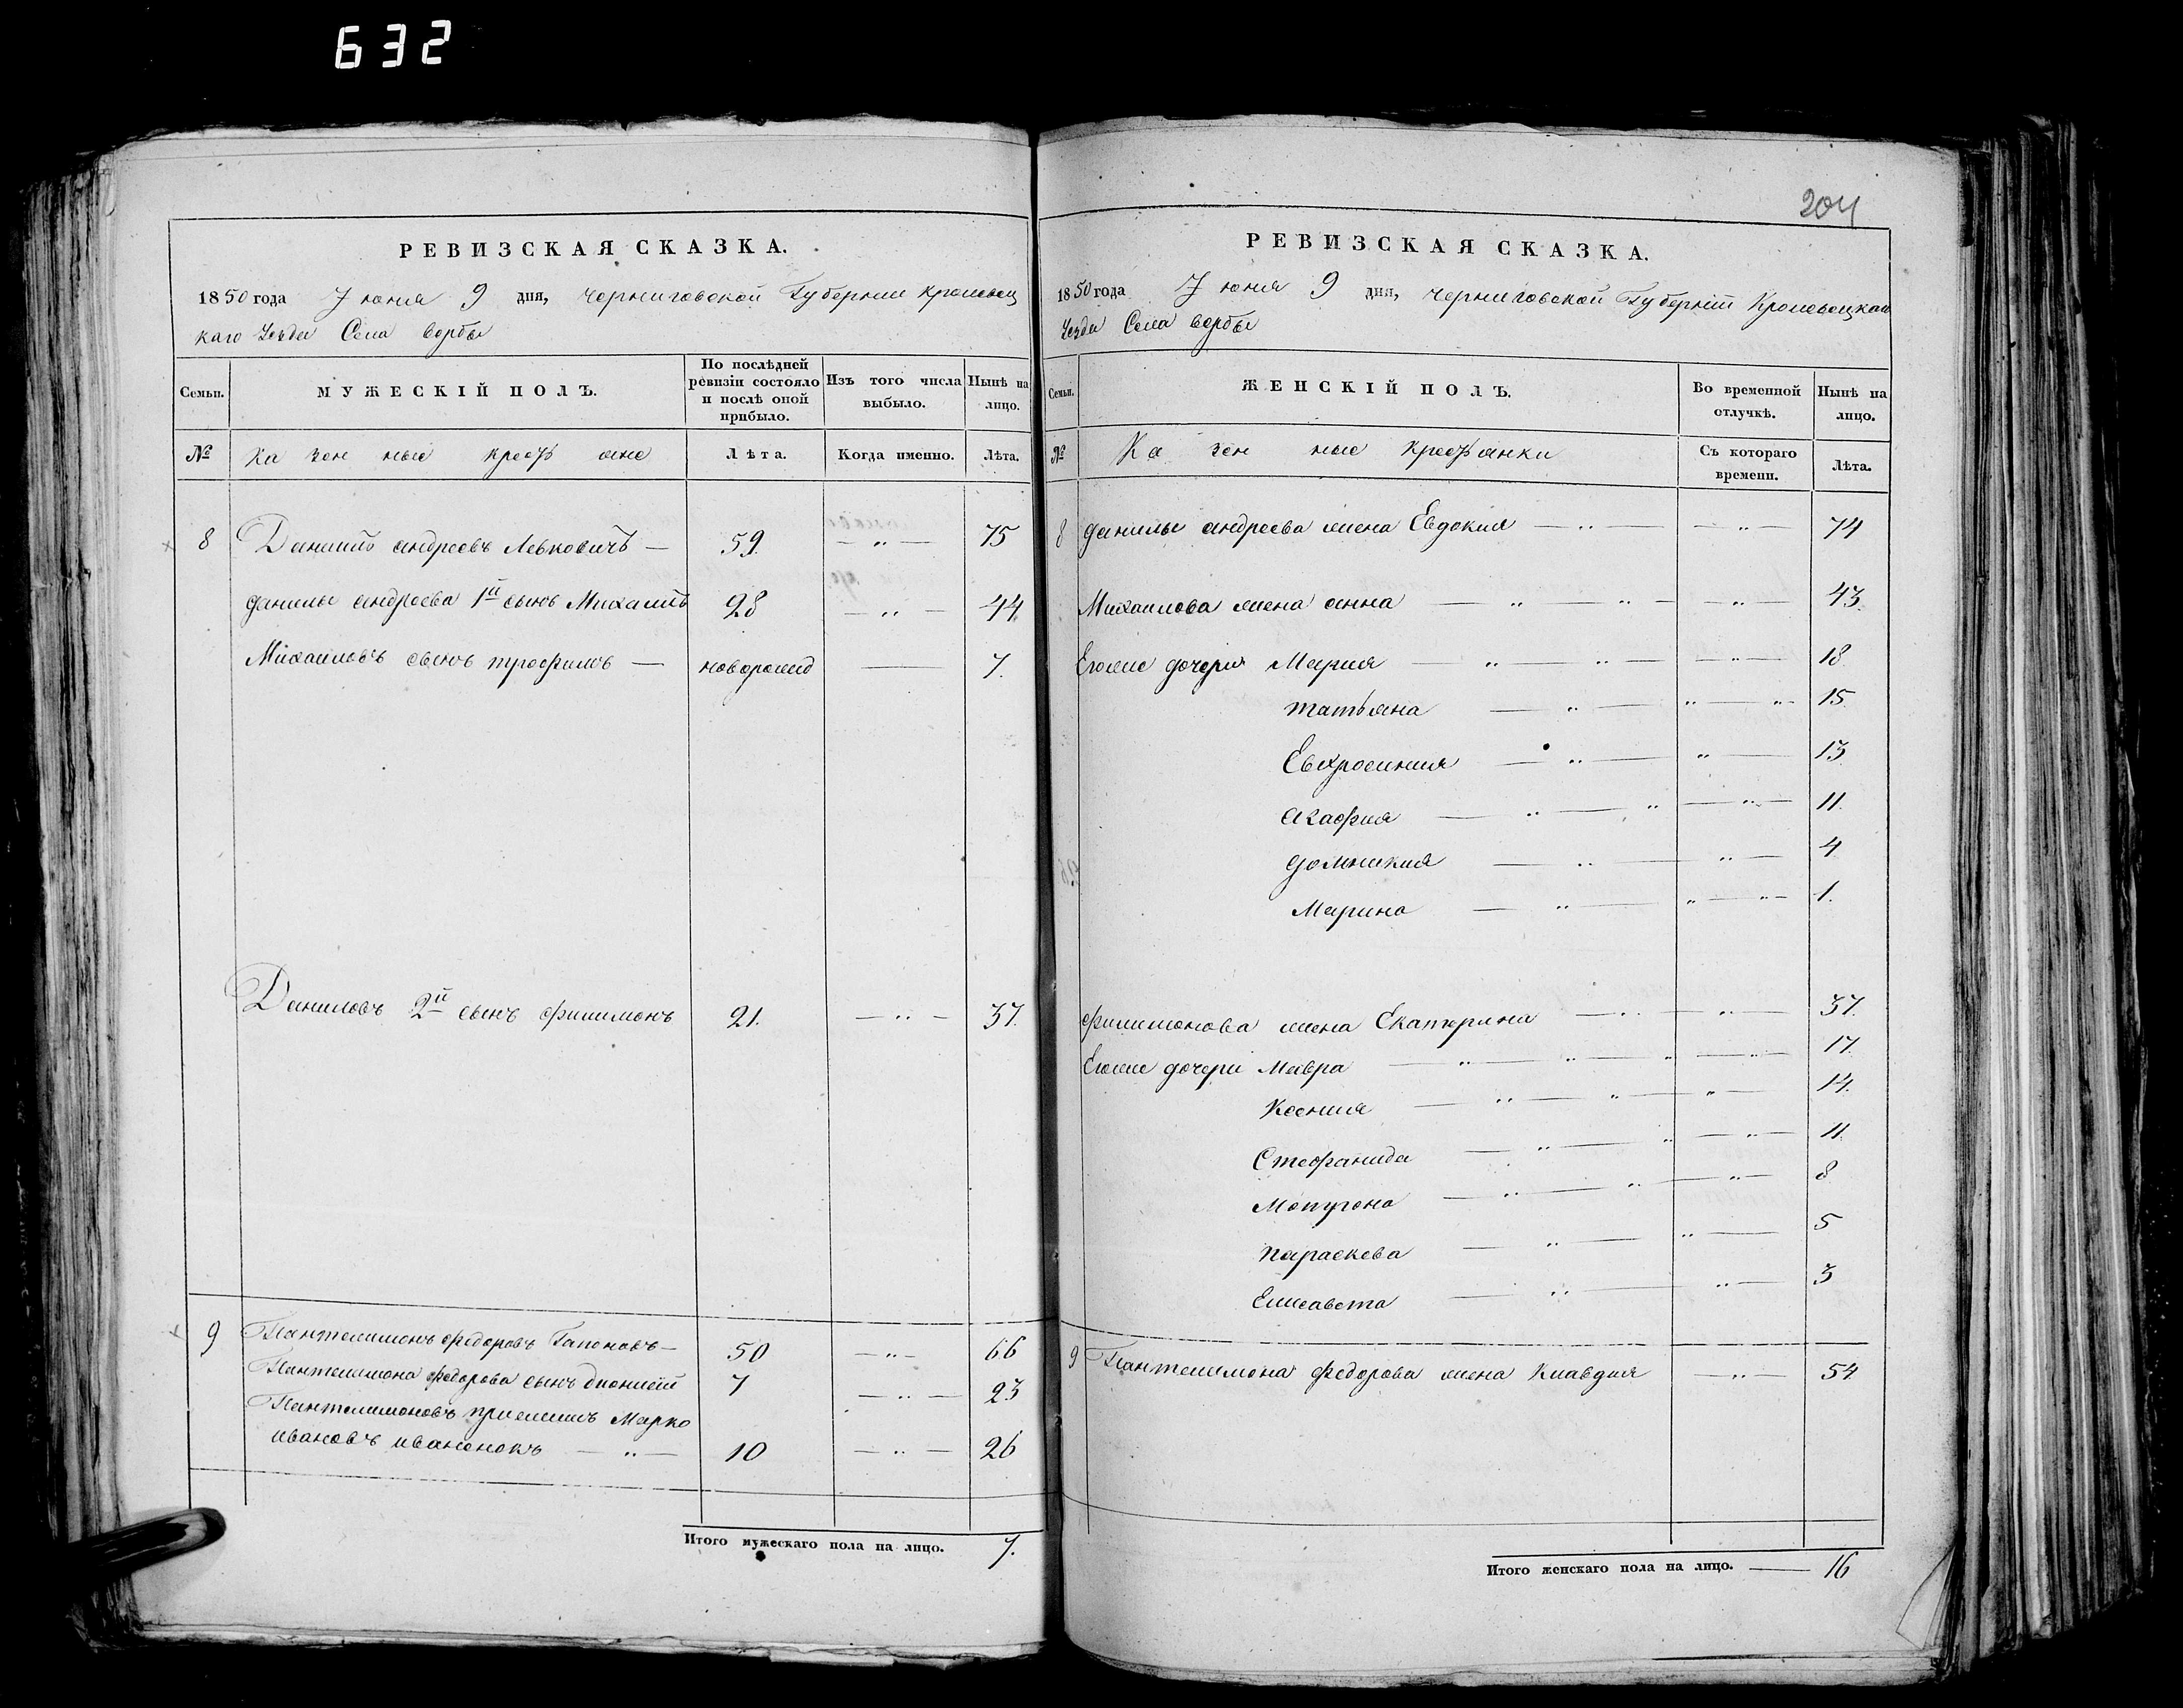 632
204
РЕВИЗСКАЯ СКАЗКА.
1850 года Июня 9 дня, черниговской Губернии Кролевец
каго Уезда Села вербы
Семьи. МУЖЕСКІЙ ПОЛЪ. По послѣдней ревизіи состояло и послѣ оной прибыло. Изъ того числа выбыло. Нынѣ на лицо.
№ Ка зен ные крестьяне Лѣта. Когда именно. Лѣта.
8 Даниилъ андреевъ Левковичъ — 59. — „ — 75
данилы андреева 1й сынъ Михаилъ 28 — „ — 44
Михаиловъ сынъ трофимъ — новорожд — 7.
Даниловъ 2й сынъ филимонъ 21. — „ — 37.
9 Пантелимонъ федоровъ Гапоновъ — 50 — „ — 66
Пантелимона федорова сынъ дионисий 7 — „ — 23
Пантелимоновъ приемышъ Марко
ивановъ иваненокъ — „ — 10 — „ — 26
Итого мужескаго пола на лицо. 7.
РЕВИЗСКАЯ СКАЗКА.
1850 года Июня 9 дня, черниговской Губерніи Кролевецкаго
Уезда Села вербы
Семьи. ЖЕНСКІЙ ПОЛЪ. Во временной отлучкѣ. Нынѣ на лицо.
№ Ка зен ные крестьянки Съ котораго времени. Лѣта.
8 данилы андреева жена Евдокия — „ — — „ — 74
Михаилова жена анна — „ — „ — — „ — 43.
Егоже дочери Мария — „ — „ — — „ — 18
татьяна — „ — „ — „ — 15
Евфросиния — „ — „ — 13
агафия — „ — „ — „ — 11.
домникия — „ — „ — 4
Марина — „ — „ — „ — 1.
филимонова жена Екатерина — „ — „ — 37.
Егоже дочери Мавра — „ — „ — „ — „ — 17.
Ксения — „ — „ — „ — 14.
Стефанида — „ — „ — „ — 11.
Мотрона — „ — „ — „ — 8
параскева — „ — „ — 5
Елисавета — „ — „ — 3
9 Пантелимона федорова жена Клавдия — „ — 54
Итого женскаго пола на лицо. — 16